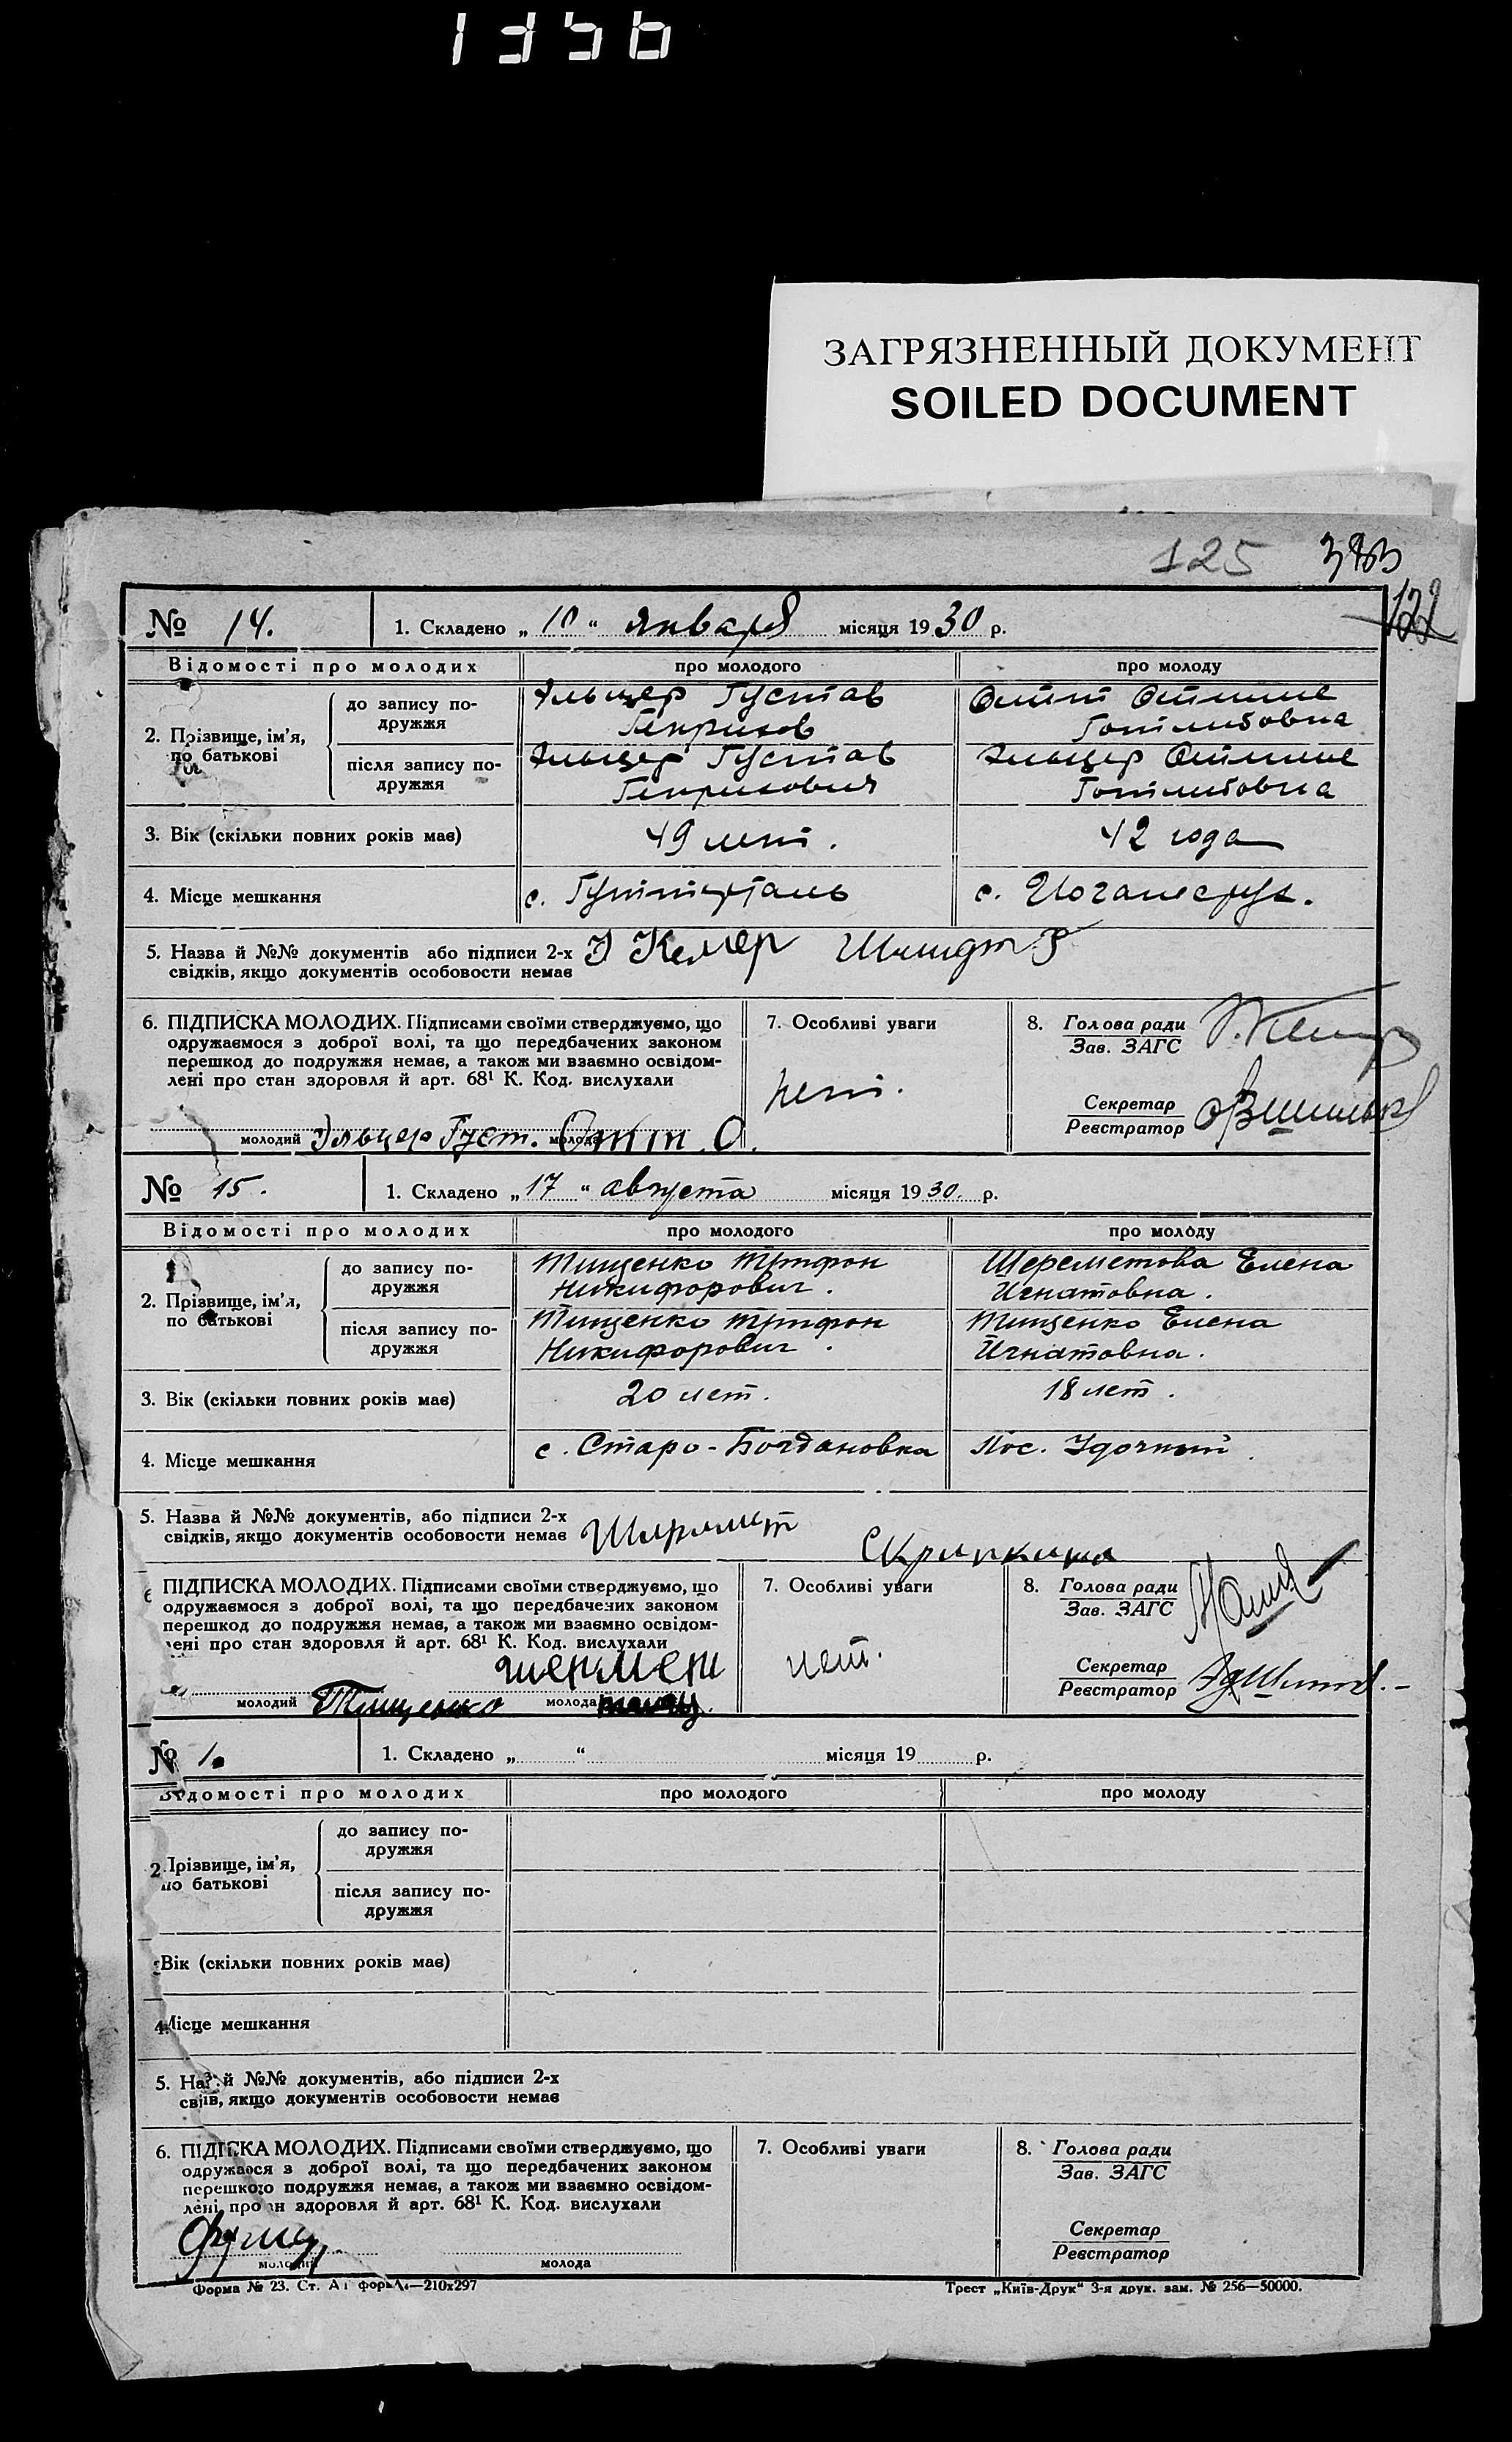 1356
ЗАГРЯЗНЕННЫЙ ДОКУМЕНТ
SOILED DOCUMENT
125 383
122
№ 14. 1. Складено „ 10 “ января місяця 1930 р.
Відомості про молодих про молодого про молоду
2. Прізвище, ім’я, по батькові
до запису подружжя
Эльцер Густав Отт Оттилие
Генрихов Готлибовна
після запису подружжя
Эльцер Густав Эльцер Оттилие
Генрихович Готлибовна
3. Вік (скільки повних років має) 49 лет. 42 года
4. Місце мешкання с. Гутталь с. Иоганесру.
5. Назва й №№ документів або підписи 2-х Келлер Шмидт
свідків, якщо документів особовости немає
6. ПІДПИСКА МОЛОДИХ. Підписами своїми стверджуємо, що 7. Особливі уваги 8. Голова ради
одружаємося з доброї волі, та що передбачених законом Зав. ЗАГС
перешкод до подружжя немає, а також ми взаємно освідом-
лені про стан здоровля й арт. 68¹ К. Код. вислухали нет.
Секретар
Реєстратор
молодий Эльцер Густ. молода Отт О.
№ 15. 1. Складено „ 17 “ августа місяця 1930. р.
Відомості про молодих про молодого про молоду
2. Прізвище, ім’я, по батькові
до запису подружжя
Тищенко Трифон Шереметова Елена
Никифорович. Игнатовна.
після запису подружжя
Тищенко Трифон Тищенко Елена
Никифорович. Игнатовна.
3. Вік (скільки повних років має) 20 лет. 18 лет.
4. Місце мешкання с. Старо-Богдановка Пос. Удачный
5. Назва й №№ документів, або підписи 2-х
свідків, якщо документів особовости немає Скрипкина
ПІДПИСКА МОЛОДИХ. Підписами своїми стверджуємо, що 7. Особливі уваги 8. Голова ради
одружаємося з доброї волі, та що передбачених законом Зав. ЗАГС
перешкод до подружжя немає, а також ми взаємно освідом-
лені про стан здоровля й арт. 68¹ К. Код. вислухали нет.
шермет Секретар
Реєстратор
молодий Тищенко молода
№ 1. Складено „ “ місяця 19 р.
Відомості про молодих про молодого про молоду
2. Прізвище, ім’я, по батькові
до запису подружжя
після запису подружжя
Вік (скільки повних років має)
4. Місце мешкання
5. Назва й №№ документів, або підписи 2-х
свідків, якщо документів особовости немає
6. ПІДПИСКА МОЛОДИХ. Підписами своїми стверджуємо, що 7. Особливі уваги 8. Голова ради
одружаємося з доброї волі, та що передбачених законом Зав. ЗАГС
перешкод до подружжя немає, а також ми взаємно освідом-
лені про стан здоровля й арт. 68¹ К. Код. вислухали
Секретар
Реєстратор
молодий молода
Форма № 23. Ст. А формы—210х297 Трест „Київ-Друк“ 3-я друк. зам. № 256—50000.